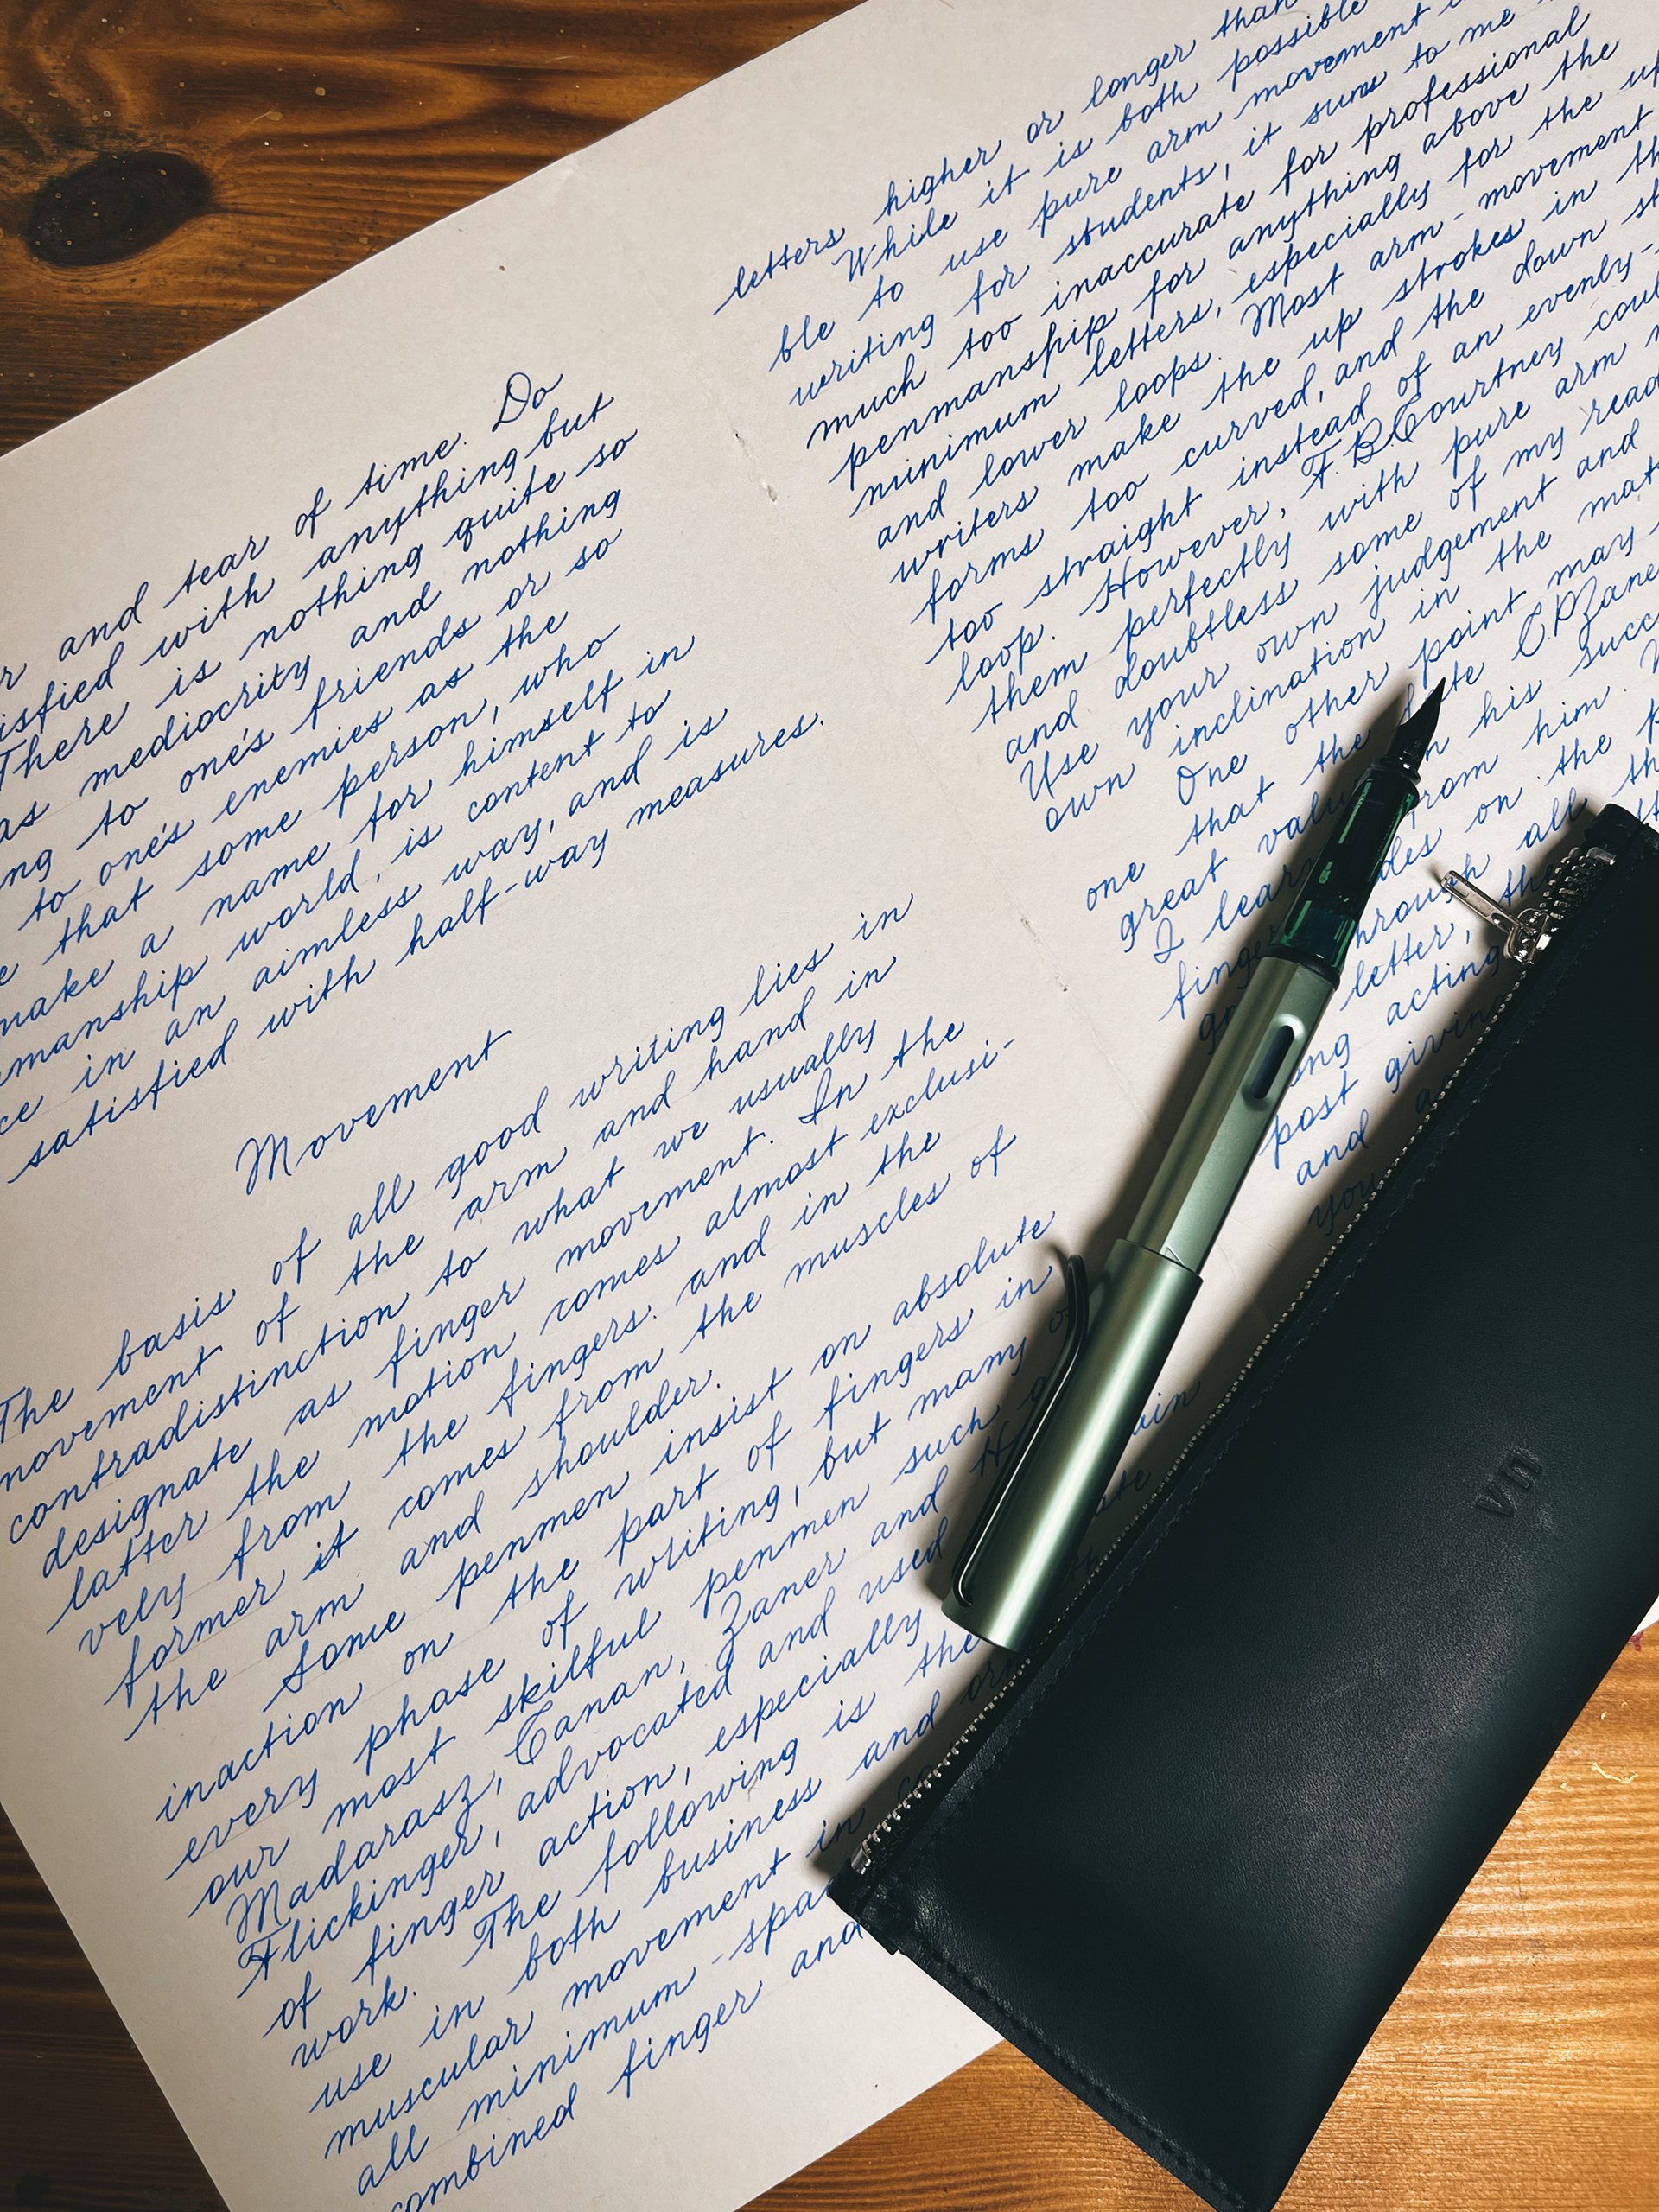 and tear of time. Do
with anything but
There is nothing quite so
as mediocrity and nothing
to one's friends or so
to one's enemies as the
that some person, who
make a name for himself in
world, is content to
in an aimless way, and is
satisfied with half-way measures.
Movement
The basis of all good writing lies in
movement of the arm and hand in
contradistinction to what we usually
designate as finger movement. In the
latter the motion comes almost exclusi-
vely from the fingers. and in the
former it comes from the muscles of
the arm and shoulder.
Some penmen insist on absolute
inaction on the part of fingers in
every phase of writing, but many of
our most skilful penmen such
Madarasz, Canan, Zaner and
Flickinger, advocated and used
of finger action, especially
work. The following is the
use in both business and
muscular movement in
all minimum-
combined finger and
letters higher or longer than
While it is both possible
ble to use pure arm movement
writing for students, it sums to me
much too inaccurate for professional
penmanship for anything above the
minimum letters, especially for the
and lower loops. Most arm-movement
writers make the up strokes in
forms too curved, and the down
too straight instead of an evenly-
loop. However, F. B. Courtney
them perfectly with pure arm
and doubtless some of my
Use your own judgement and
own inclination in the
One other point may
one that the C P Zaner
great his
I from him.
on the
through all
letter, the
acting
post giving
and
you
vn